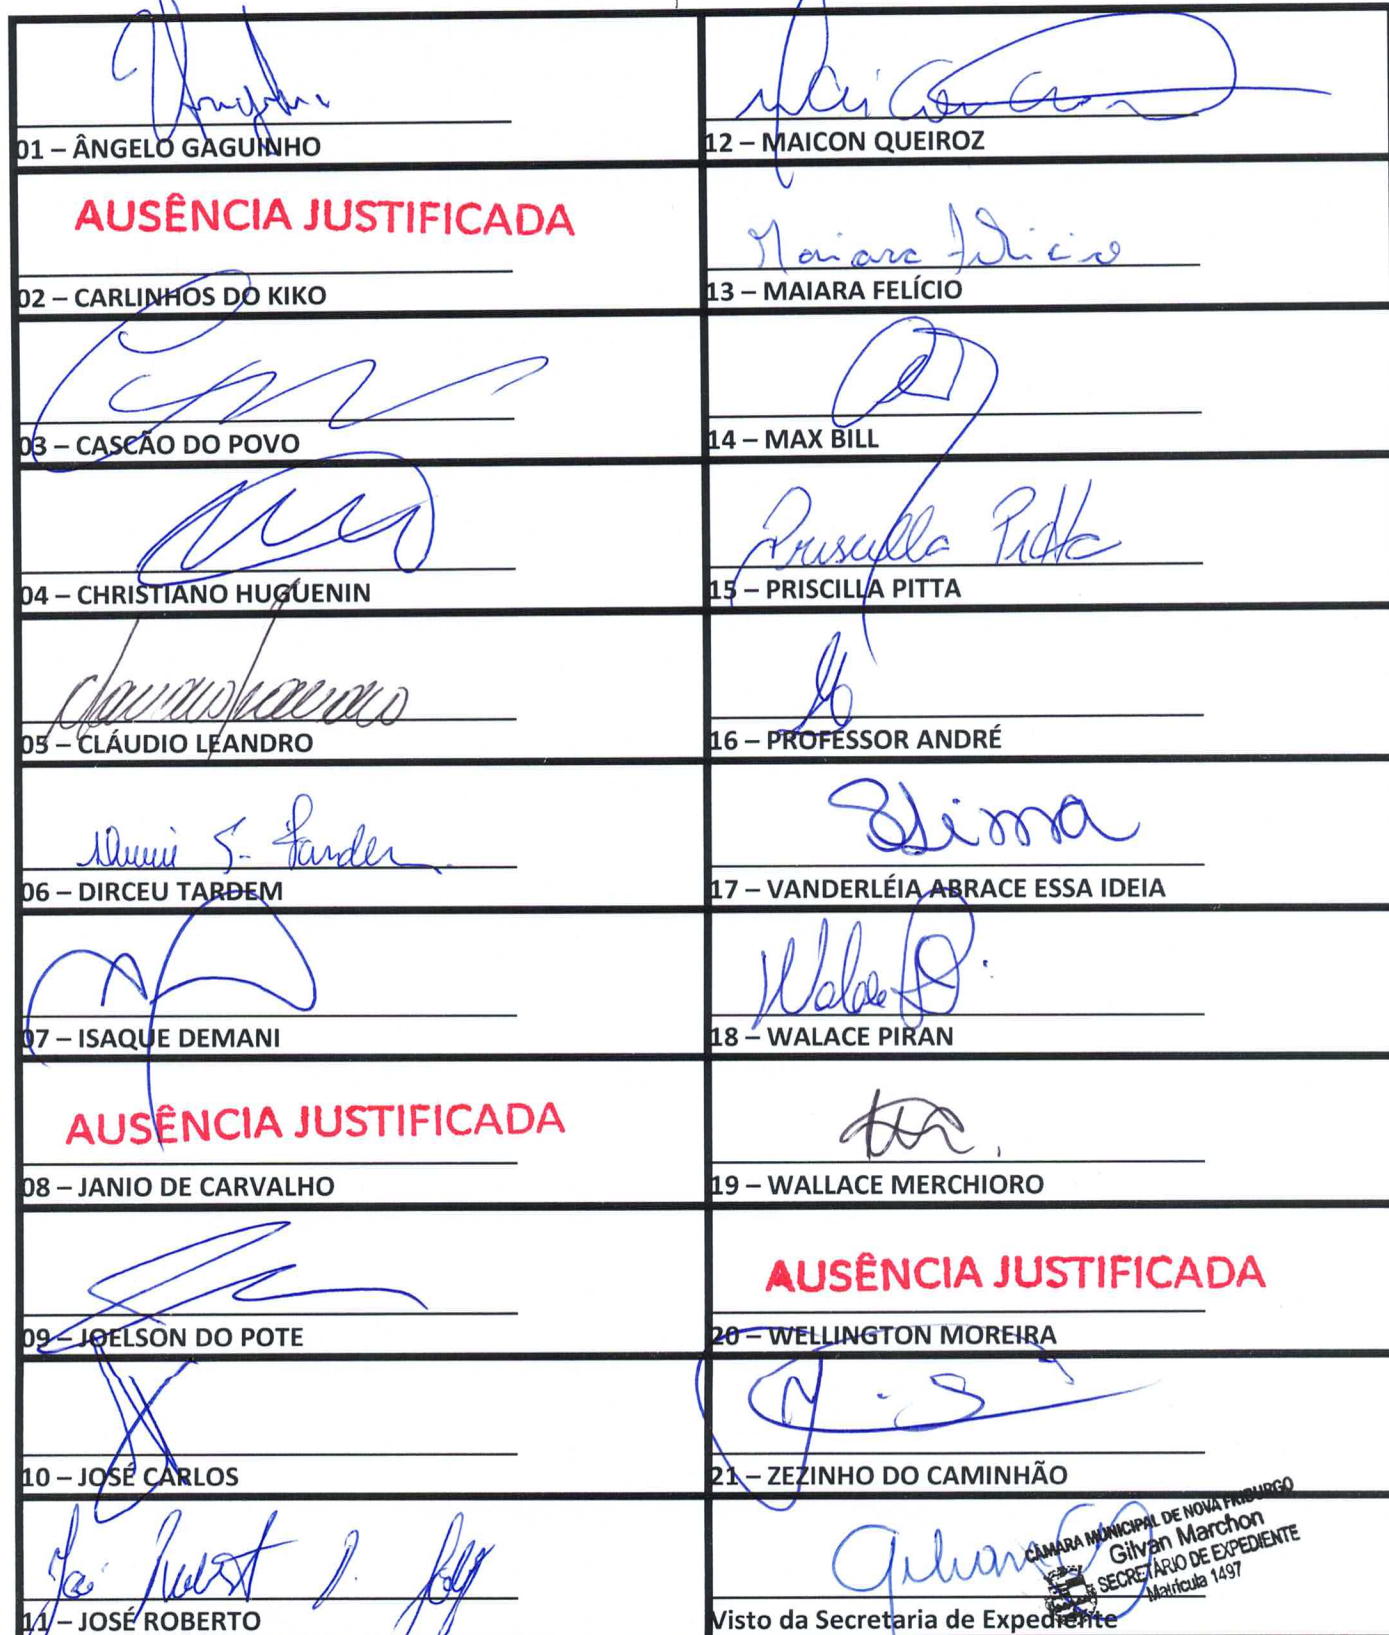 01 – ÂNGELO GAGUINHO
AUSÊNCIA JUSTIFICADA
02 – CARLINHOS DO KIKO
03 – CASCÃO DO POVO
04 – CHRISTIANO HUGUENIN
05 – CLÁUDIO LEANDRO
06 – DIRCEU TARDEM
07 – ISAQUE DEMANI
AUSÊNCIA JUSTIFICADA
08 – JANIO DE CARVALHO
09 – JOELSON DO POTE
10 – JOSÉ CARLOS
11 – JOSÉ ROBERTO
12 – MAICON QUEIROZ
Maiara Felicio
13 – MAIARA FELÍCIO
14 – MAX BILL
Priscilla Pitta
15 – PRISCILLA PITTA
16 – PROFESSOR ANDRÉ
17 – VANDERLÉIA ABRACE ESSA IDEIA
18 – WALACE PIRAN
19 – WALLACE MERCHIORO
AUSÊNCIA JUSTIFICADA
20 – WELLINGTON MOREIRA
21 – ZEZINHO DO CAMINHÃO
CÂMARA MUNICIPAL DE NOVA FRIBURGO
Gilvan Marchon
SECRETÁRIO DE EXPEDIENTE
Matrícula 1497
Visto da Secretaria de Expediente